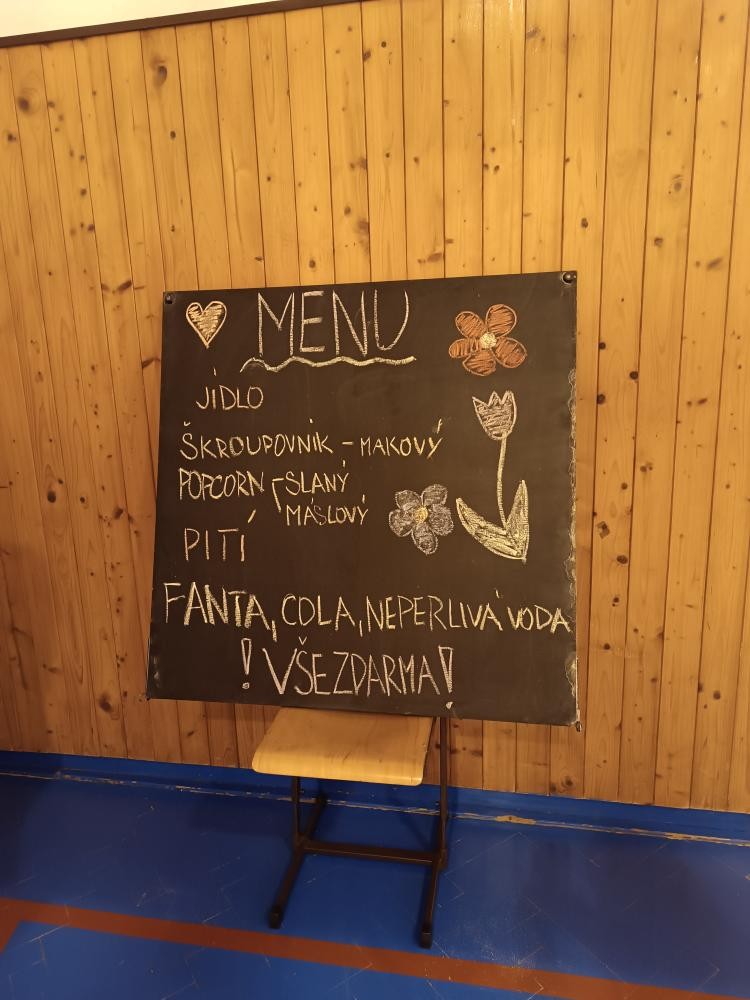 MENU
JÍDLO
ŠKROUPOVNÍK - MAKOVÝ
POPCORN - SLANÝ
MÁSLOVÝ
PITÍ
FANTA, COLA, NEPERLIVÁ VODA
! VŠE ZDARMA!